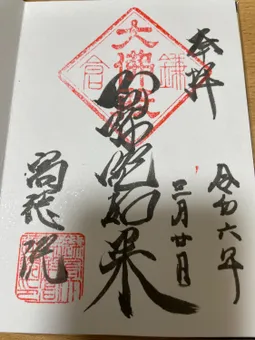 奉拝
令和六年
三月廿日
大佛殿
鎌倉
阿弥陀如来
高徳院